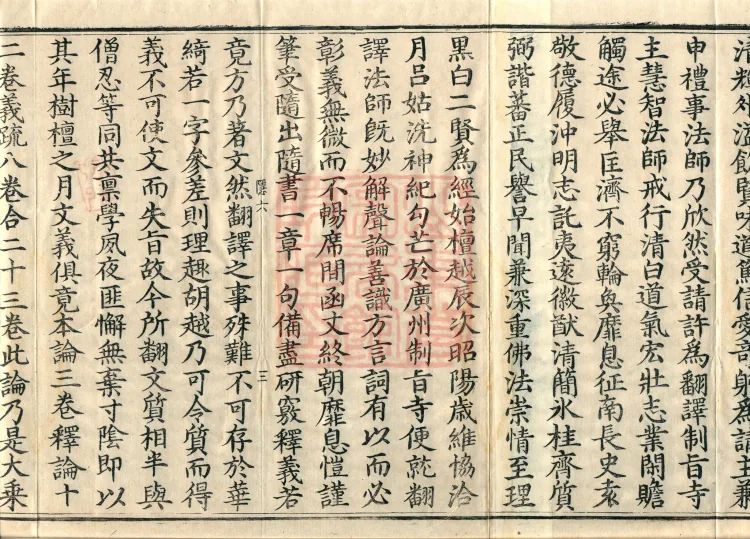 清輝外溢欽賢味道篤信愛奇躬爲請主兼
申禮事法師乃欣然受請許爲翻譯制旨寺
主慧智法師戒行清白道氣宏壯志業閑贍
觸途必舉匡濟不窮輪奐靡息征南長史袁
敬德履沖明志託夷遠徽猷清簡氷桂齊質
弼諧蕃正民譽早聞兼深重佛法崇情至理
黑白二賢爲經始檀越辰次昭陽歳維協洽
月吕姑洗神紀勾芒於廣州制旨寺便就翻
譯法師旣妙解聲論善識方言詞有以而必
彰義無微而不暢席閒函丈終朝靡息愷謹
筆受隨出隨書一章一句備盡研竅釋義若
六 三
竟方乃著文然翻譯之事殊難不可存於華
綺若一字參差則理趣胡越乃可令質而得
義不可使文而失旨故今所翻文質相半與
僧忍等同共禀學夙夜匪懈無棄寸陰即以
其年樹檀之月文義俱竟本論三卷釋論十
二卷義疏八卷合二十三卷此論乃是大乘